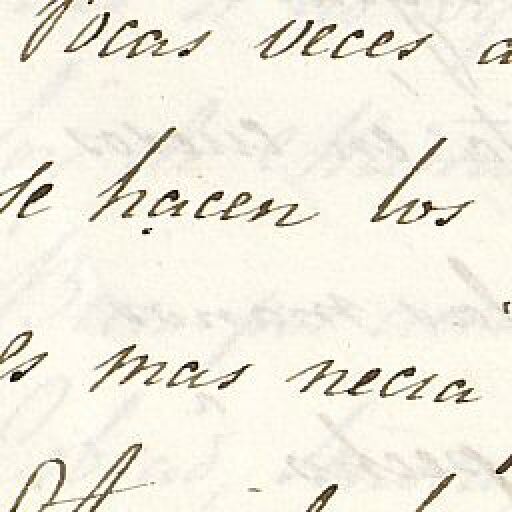 Pocas veces a
se hacen los
es mas necia